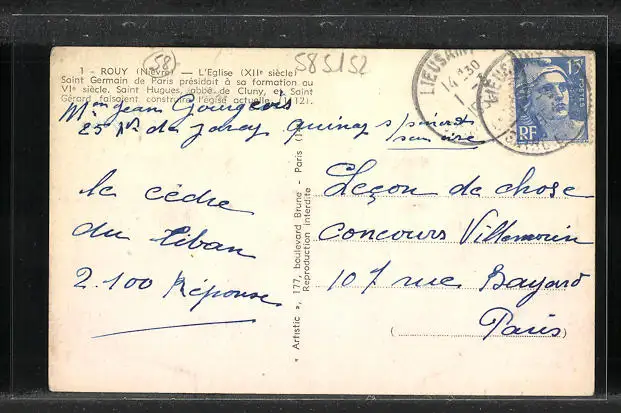 58
585152
1 - ROUY (Nièvre) — L'Eglise (XIIe siècle)
Saint Germain de Paris présidait à sa formation au
VIe siècle. Saint Hugues, abbé de Cluny, et Saint
Gérard faisaient construire l'église actuelle (1112).
Mme jean Gourgeois
25 de jarcy quincy s/
le cèdre
du Liban
2.100 Réponse
« Artistic », 177, boulevard Brune - Paris
Reproduction interdite
LIEUSAINT
14 H 30
15F
RF
POSTES
Leçon de chose
Concours Vilmorin
107 rue Bayard
Paris